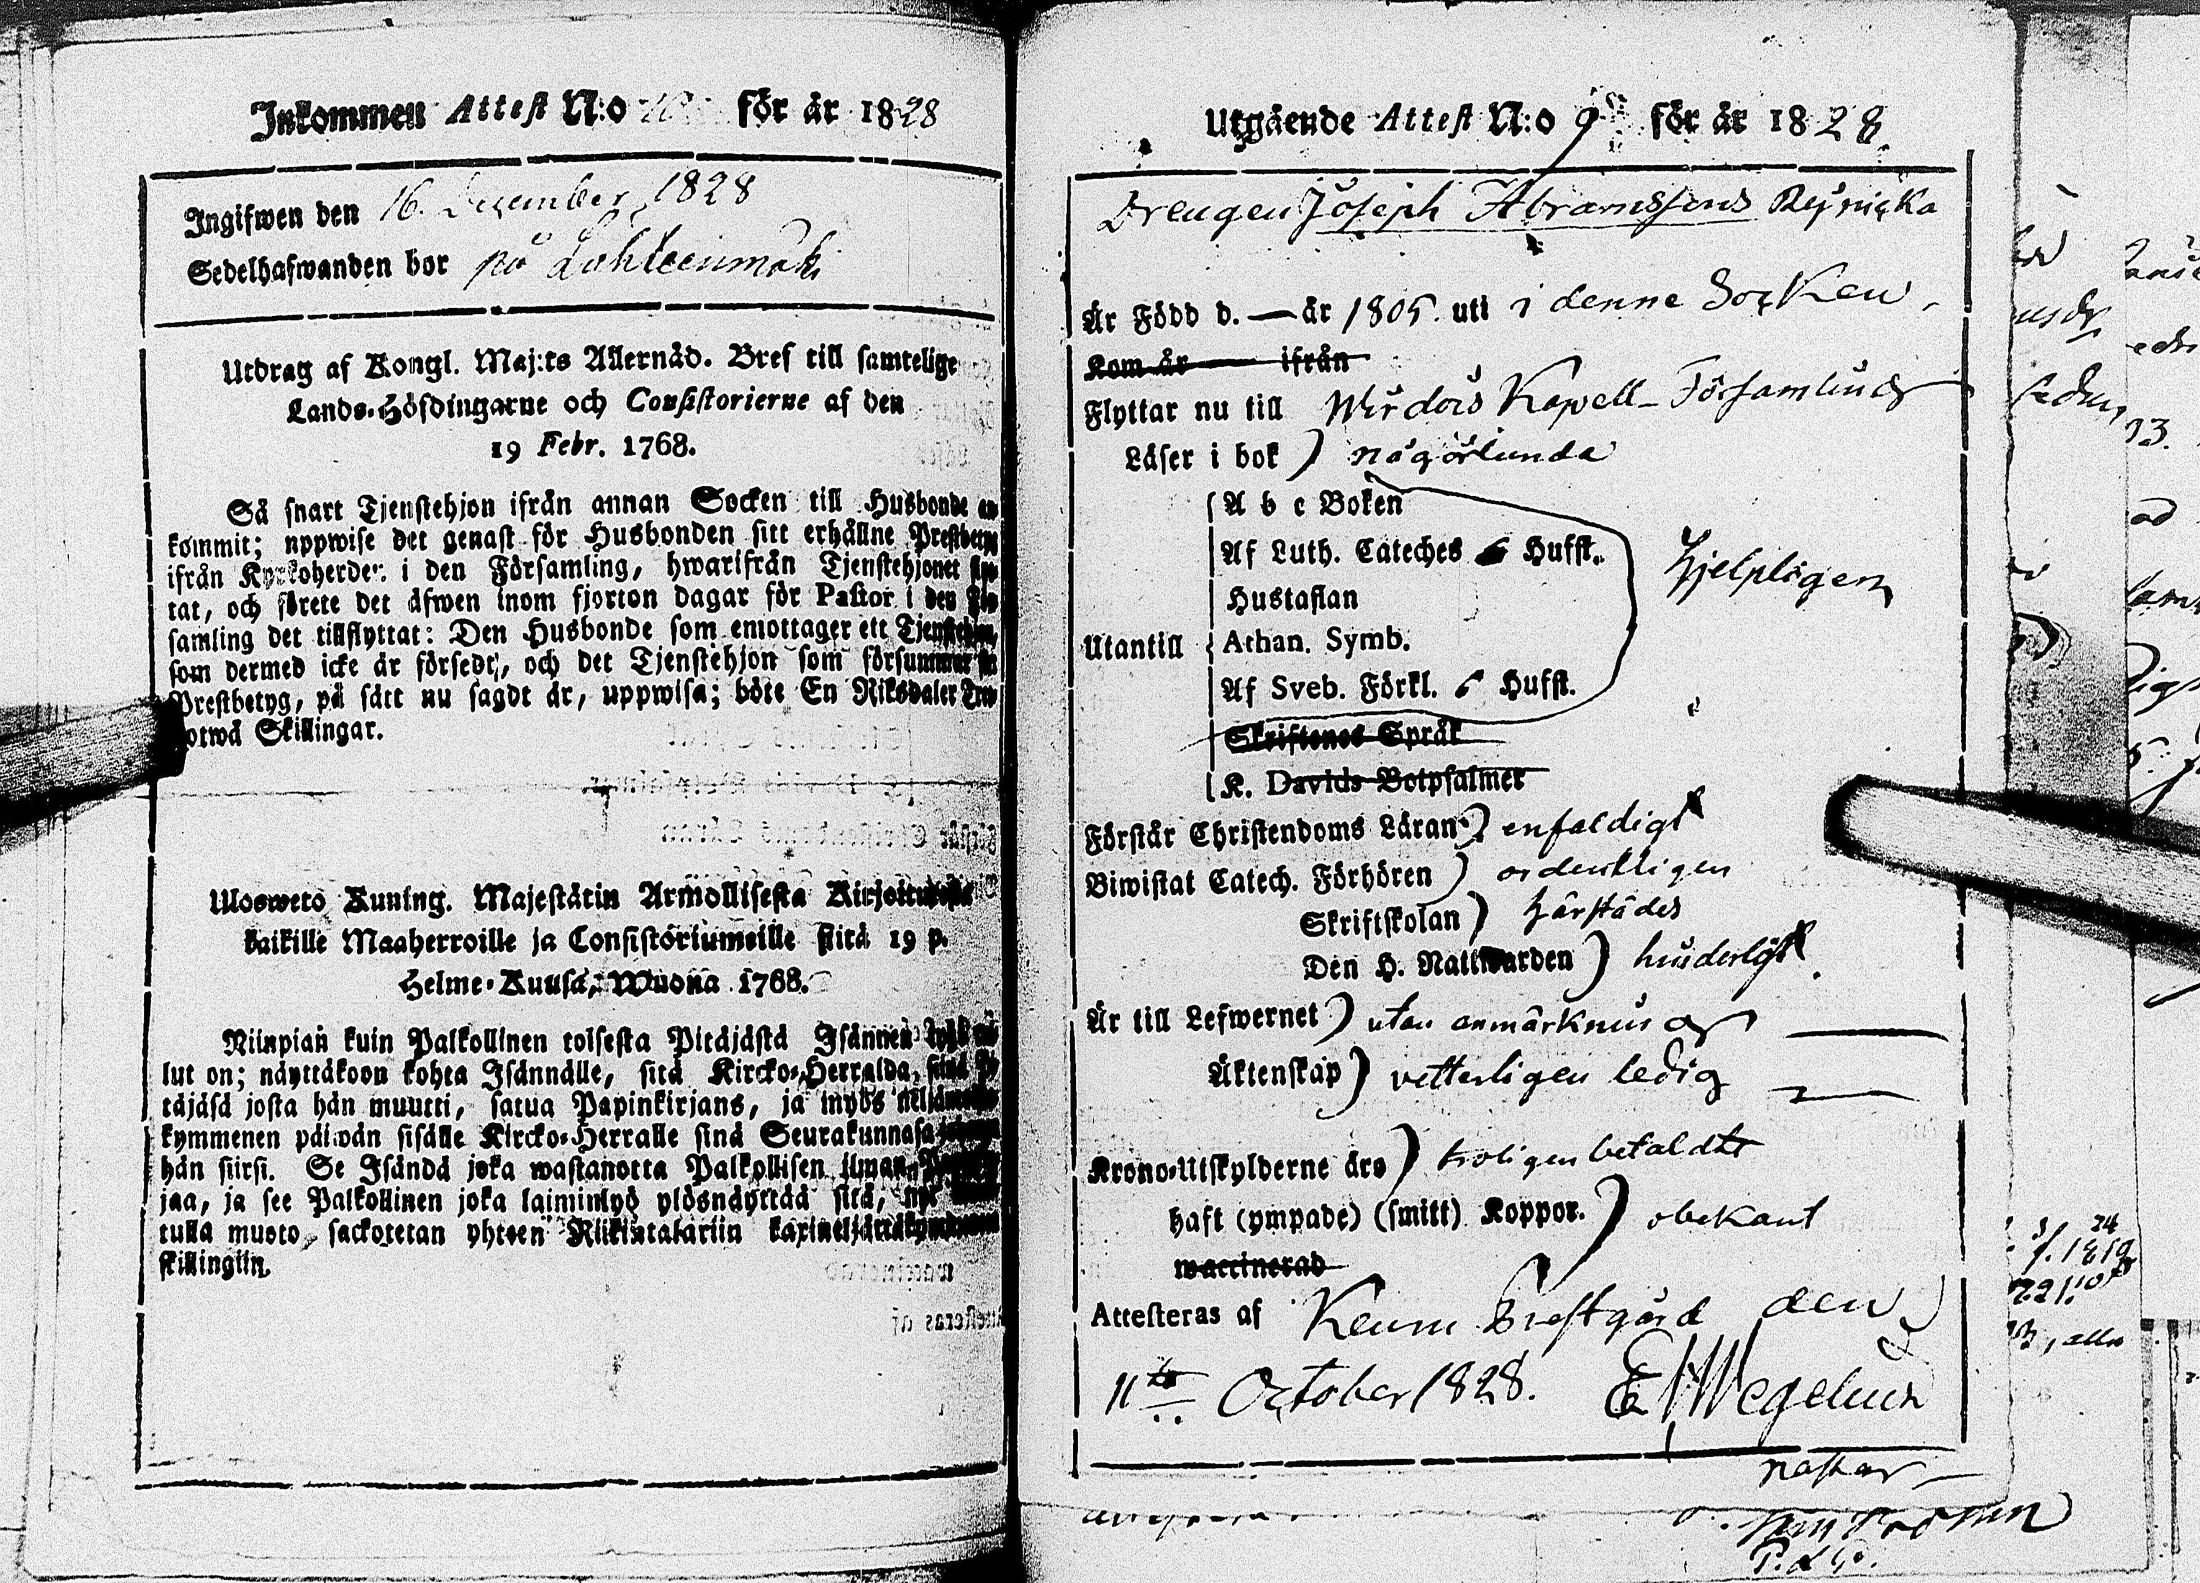 Inkommen Attest N:o för år 1828
Ingifwen den 16. December 1828
Sedelhafwanden bor på Lahdeenmäki
Utdrag af Kongl. Maj:ts Allernåd. Bref till samtelige
Lands-Höfdingarne och Consistorierne af den
19 Febr. 1768.
Så snart Tjenstehjon ifrån annan Socken till Husbonde an
kommit; uppwise det genast för Husbonden sitt erhållne Prestbetyg
ifrån Kyrkoherden i den Församling, hwarifrån Tjenstehjonet flyt
tat, och förete det äfwen inom fjorton dagar för Pastor i den För
samling det tillflyttat: Den Husbonde som emottager ett Tjenstehjon,
som dermed icke är försedt, och det Tjenstehjon som försummar sit
Prestbetyg, på sätt nu sagdt är, uppwisa; böte En Riksdaler Tret
totwå Skillingar.
Ulosweto Kuning. Majestätin Armollisesta Kirjoituxesta
kaikille Maaherroille ja Consistoriumeille siitä 19 p.
Helme-Kuusa, Wuona 1768.
Niinpian kuin Palkollinen toisesta Pitäjästä Isännen
lut on; näyttäkoon kohta Isännälle, sitä Kircko-Herralda, siinä Pi
täjäsä josta hän muutti, saatua Papinkirjans, ja myös neljäntoista
kymmenen päiwän sisälle Kircko-Herralle siinä Seurakunnasa
hän siirsi. Se Isändä joka wastanotta Palkollisen ilman
jaa, ja see Palkollinen joka laiminlyö ylösnäyttää sitä, nyt
tulla muoto, sackotetan yhteen Riikintalariin
skillingiin.
Utgående Attest N:o 9 för år 1828.
Drengen Joseph Abramssons Reinicka
Är Född d. — år 1805. uti i denne Socken,
Kom år — ifrån
Flyttar nu till Wirdois Kapell-Församling
Läser i bok ) någorlunda
A b c Boken
Af Luth. Cateches 6 Hufst.
Hustaflan
Hjelpligen
Utantill
Athan. Symb.
Af Sveb. Förkl. 6 Hufst.
Skriftenes Språk
K. Davids Botpsalmer
Förstår Christendoms Läran ) enfaldigt
Biwistat Catech. Förhören ) ordentligen
Skriftskolan ) härstädes
Den H. Nattwarden ) hinderligt
Är till Lefwernet ) utan anmärkning
Äktenskap ) vetterligen ledig
Krono-Utskylderne äro ) troligen betaldte
haft (ympade) (smitt) Koppor. ) obekant
waccinerad
Attesteras af Keuru Prestgård den
11te October 1828. E Wegelius
Pastor